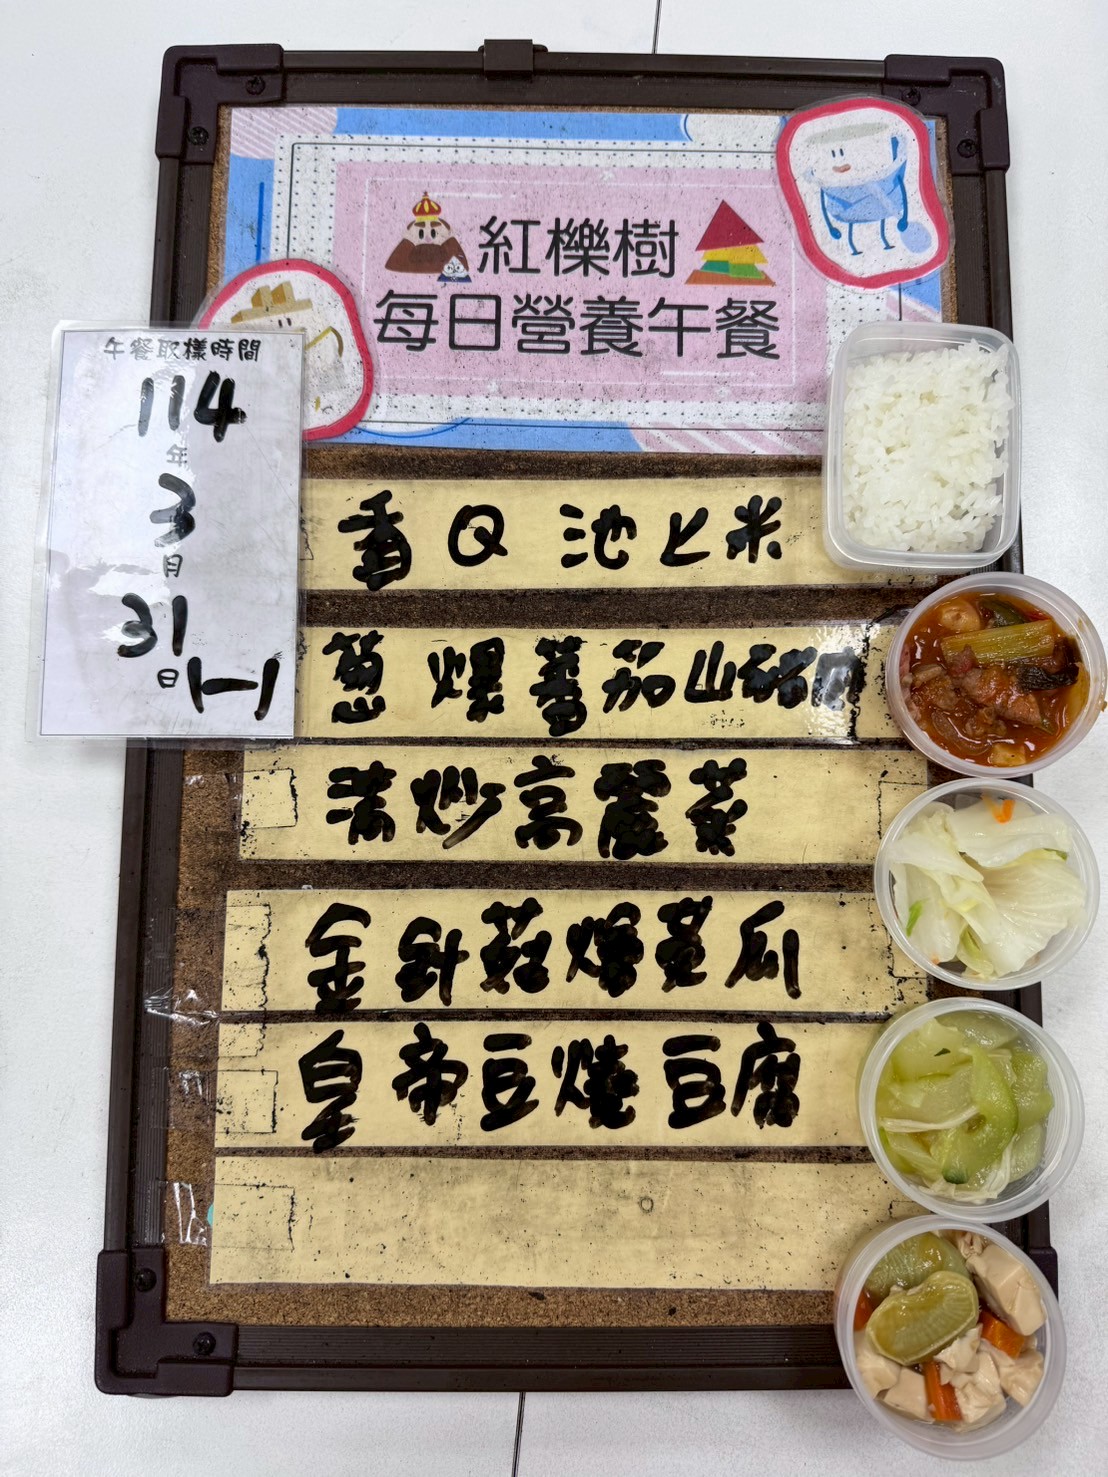 紅櫟樹
每日營養午餐
午餐取樣時間
114
年
3
月
31
日
香Q池上米
蔥爆蕃茄山豬肉
清炒高麗菜
金針菇燴黃瓜
皇帝豆燒豆腐